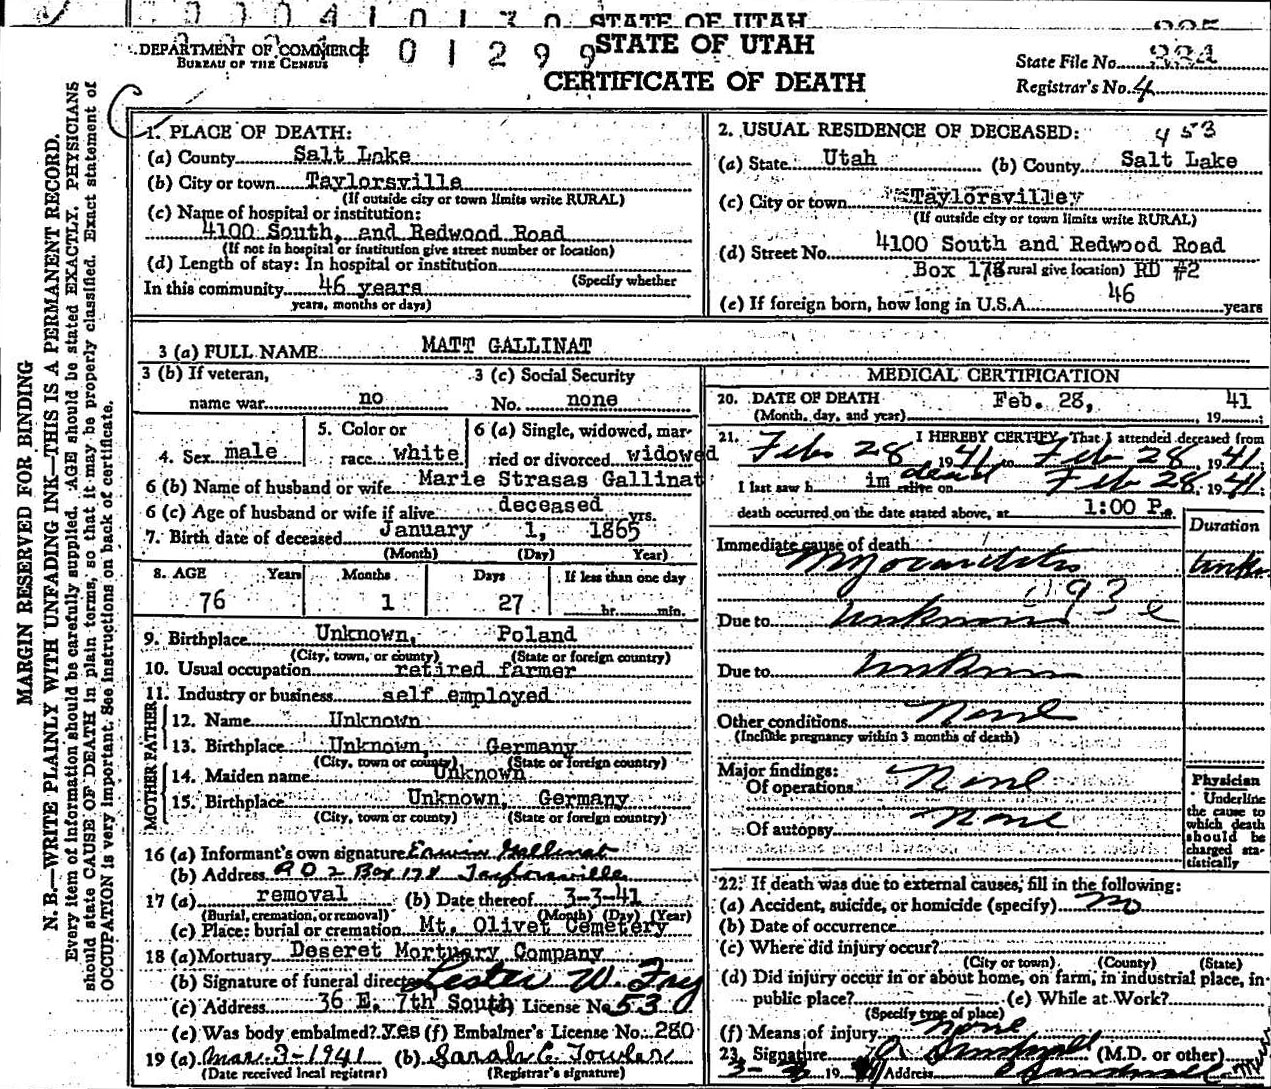 0 0 0 4 1 0 1 3 0 STATE OF UTAH
DEPARTMENT OF COMMERCE
BUREAU OF THE CENSUS
0 1 2 9 9
STATE OF UTAH
CERTIFICATE OF DEATH
State File No. 224
Registrar's No. 4
MARGIN RESERVED FOR BINDING
N. B.—WRITE PLAINLY WITH UNFADING INK—THIS IS A PERMANENT RECORD.
Every item of information should be carefully supplied. AGE should be stated EXACTLY. PHYSICIANS
should state CAUSE OF DEATH in plain terms, so that it may be properly classified. Exact statement of
OCCUPATION is very important. See instructions on back of certificate.
1. PLACE OF DEATH:
(a) County Salt Lake
(b) City or town Taylorsville
(If outside city or town limits write RURAL)
(c) Name of hospital or institution:
4100 South, and Redwood Road
(If not in hospital or institution give street number or location)
(d) Length of stay: In hospital or institution
(Specify whether
In this community 46 years
years, months or days)
2. USUAL RESIDENCE OF DECEASED: 453
(a) State Utah (b) County Salt Lake
(c) City or town Taylorsville
(If outside city or town limits write RURAL)
(d) Street No. 4100 South and Redwood Road
Box 178 rural give location) RD #2
(e) If foreign born, how long in U.S.A. 46 years
3 (a) FULL NAME MATT GALLINAT
3 (b) If veteran,
name war no
3 (c) Social Security
No. none
4. Sex male
5. Color or
race white
6 (a) Single, widowed, mar-
ried or divorced widowed
6 (b) Name of husband or wife Marie Strasas Gallinat
6 (c) Age of husband or wife if alive deceased yrs.
7. Birth date of deceased January 1, 1865
(Month) (Day) Year)
8. AGE Years Months Days If less than one day
76 1 27 hr. min.
9. Birthplace Unknown, Poland
(City, town, or county) (State or foreign country)
10. Usual occupation retired farmer
11. Industry or business self employed
FATHER
12. Name Unknown
13. Birthplace Unknown, Germany
(City, town or county) (State or foreign country)
MOTHER
14. Maiden name Unknown
15. Birthplace Unknown, Germany
(City, town or county) (State or foreign country)
16 (a) Informant's own signature Erwin Gallinat
(b) Address R D 2 Box 178 Taylorsville
17 (a) removal (b) Date thereof 3-3-41
(Burial, cremation, or removal) (Month) (Day) (Year)
(c) Place: burial or cremation Mt. Olivet Cemetery
18 (a) Mortuary Deseret Mortuary Company
(b) Signature of funeral director Lester W. Fry
(c) Address 36 E. 7th South License No. 53
(e) Was body embalmed? yes (f) Embalmer's License No. 280
19 (a) Mar. 3-1941 (b) Sarah C. Towler
(Date received local registrar) (Registrar's signature)
MEDICAL CERTIFICATION
20. DATE OF DEATH Feb. 28, 41
(Month, day, and year) , 19
21. I HEREBY CERTIFY, That I attended deceased from
Feb 28, 1941, to Feb 28, 1941,
I last saw him dead alive on Feb 28, 1941;
death occurred on the date stated above, at 1:00 P.
Duration
Immediate cause of death
Myocarditis
93 e
Due to Unknown
Due to Unknown
Other conditions None
(Include pregnancy within 3 months of death)
Major findings:
Of operations None
Of autopsy None
Physician
Underline
the cause to
which death
should be
charged sta-
tistically
22. If death was due to external causes, fill in the following:
(a) Accident, suicide, or homicide (specify) no
(b) Date of occurrence
(c) Where did injury occur?
(City or town) (County) (State)
(d) Did injury occur in or about home, on farm, in industrial place, in
public place? (e) While at Work?
(Specify type of place)
(f) Means of injury none
23. Signature (M.D. or other)
19 Address